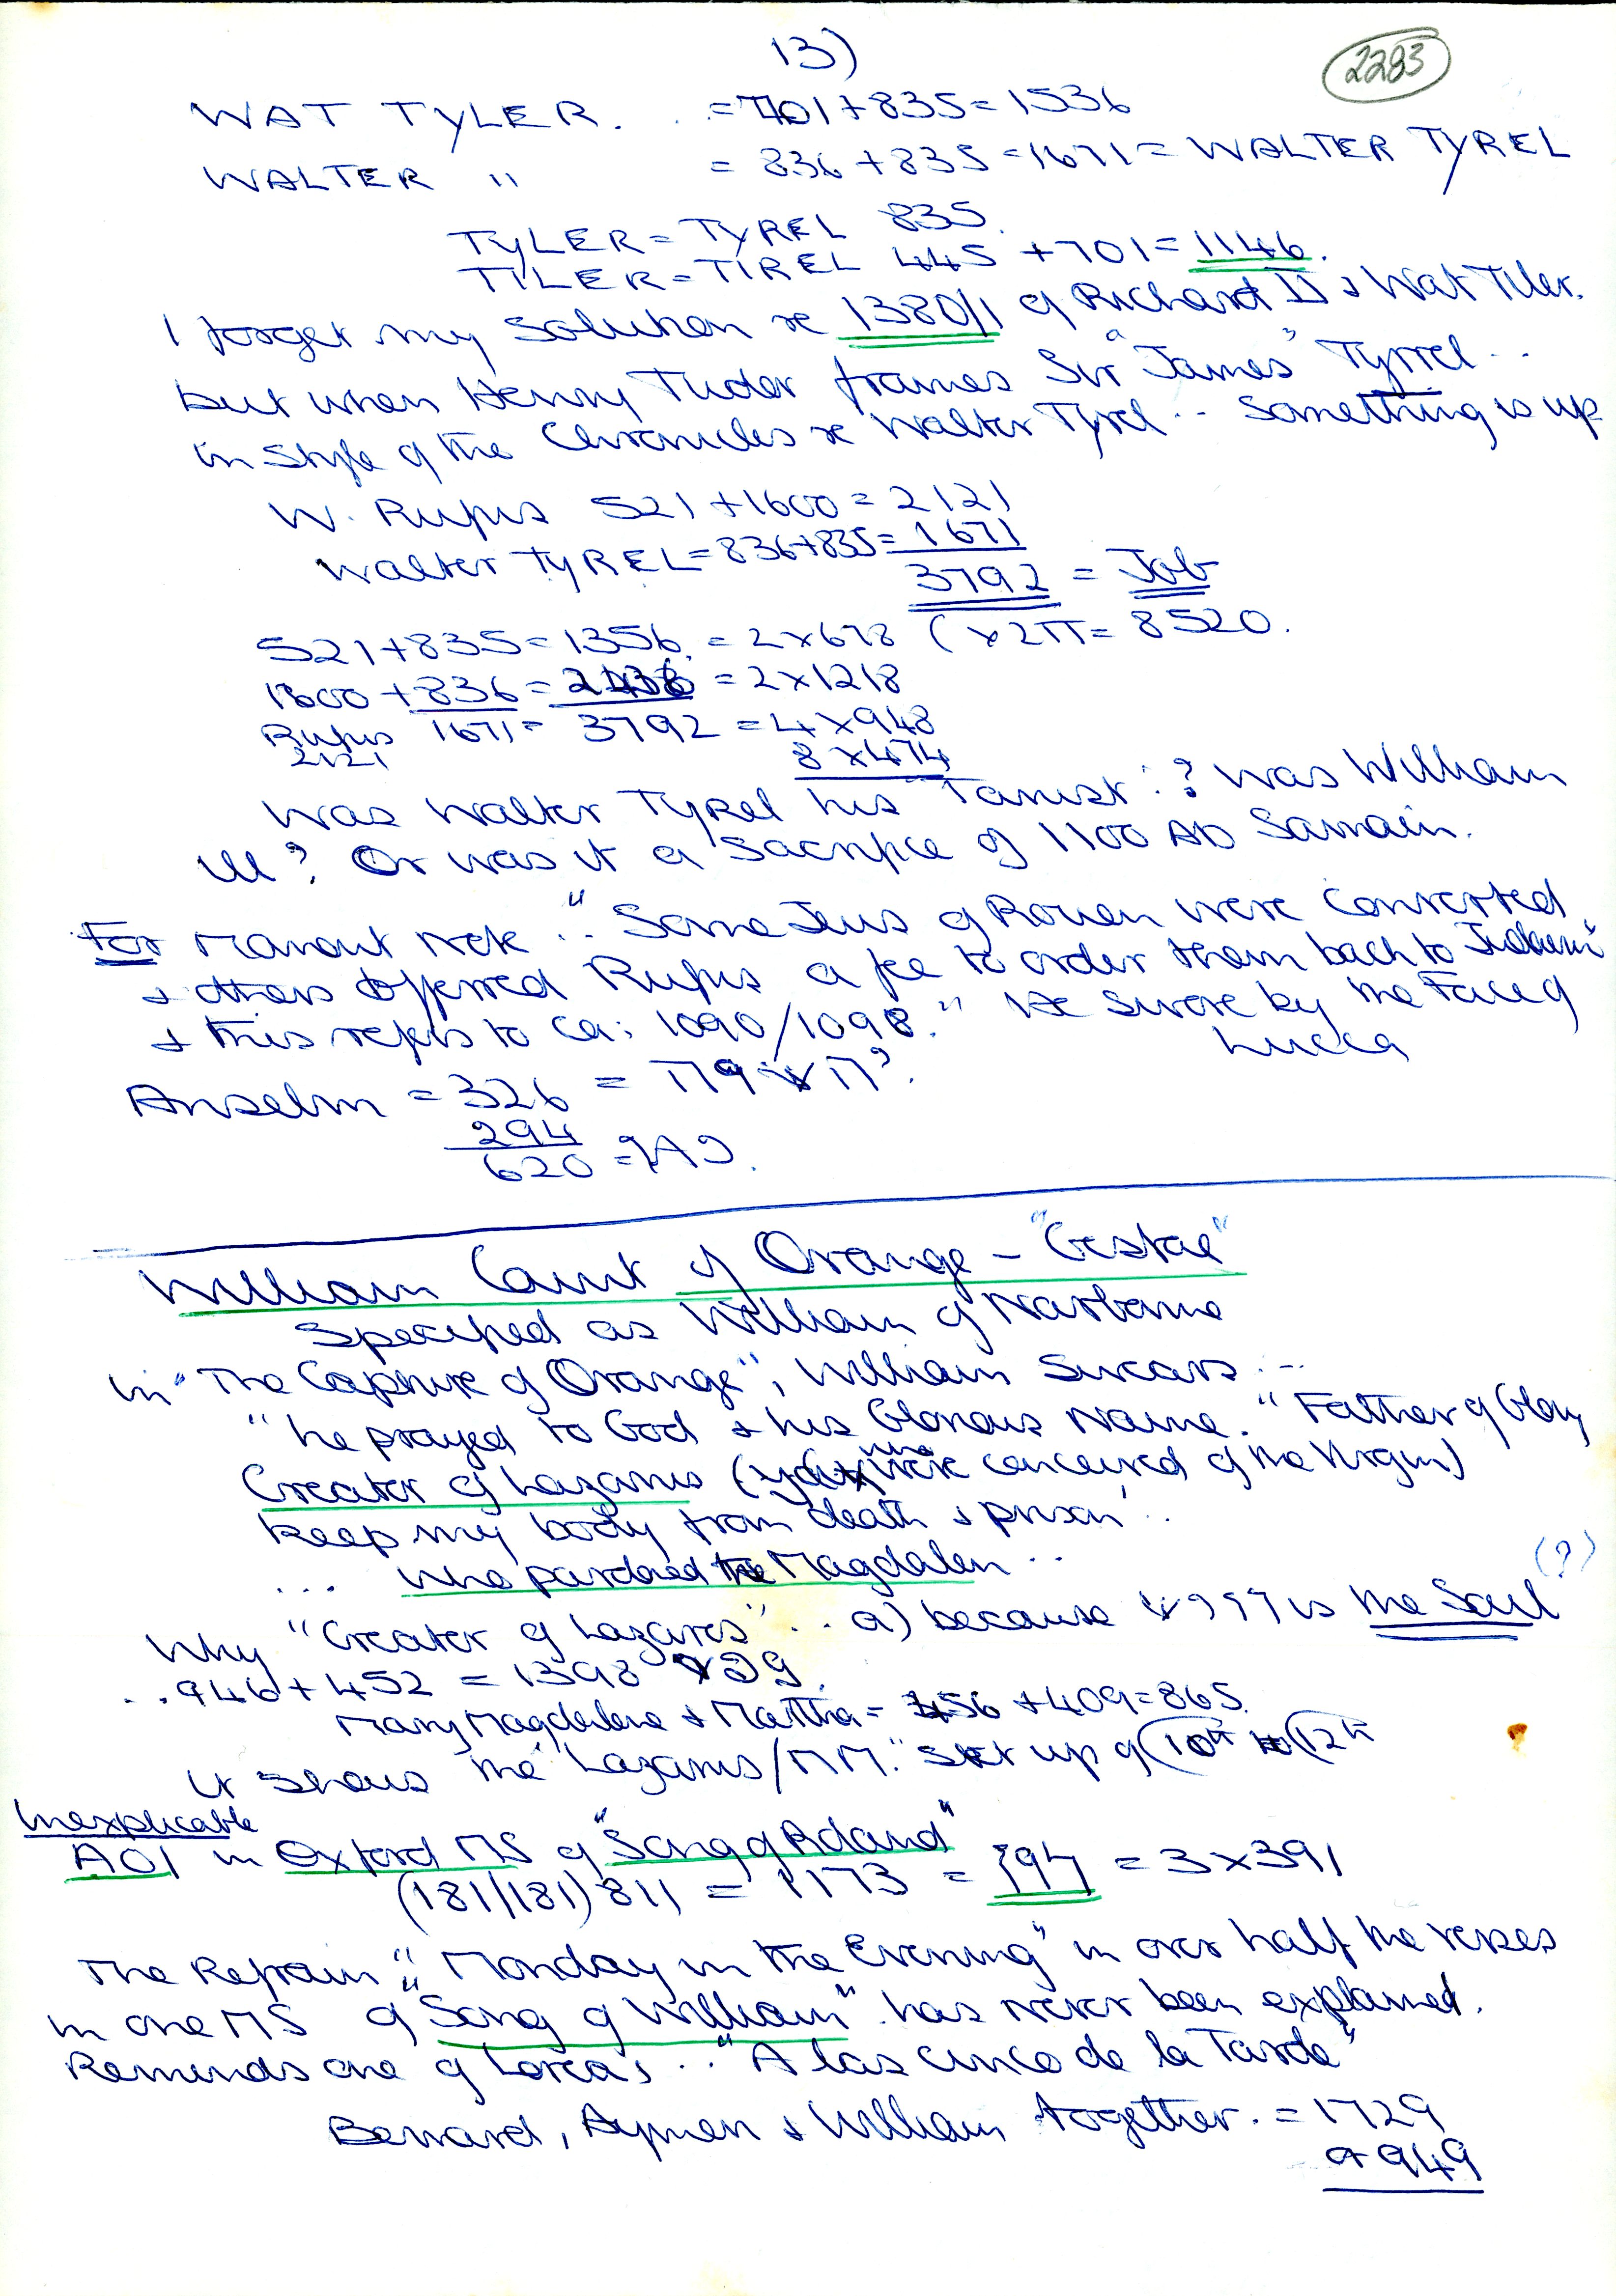 13)
2283
WAT TYLER. . = 701 + 835 = 1536
WALTER " = 836 + 835 = 1671 = WALTER TYREL
TYLER = TYREL 835.
TILER = TIREL 445 + 701 = 1146.
I forget my solution re 1380/1 of Richard II & Wat Tiler.
but when Henry Tudor frames Sir "James" Tyrrel ..
in style of the Chronicles re Walter Tyrel .. Something is up
W. Rufus 521 + 1600 = 2121
Walter TYREL = 836 + 835 = 1671
3792 = Job
521 + 835 = 1356. = 2 x 678 (x 2π = 8520.
1600 + 836 = 2436 = 2 x 1218
Rufus 1671 = 3792 = 4 x 948
2121 8 x 474
Was Walter Tyrel his Tanist :? Was William
ill? Or was it a sacrifice of 1100 AD Samain.
For note ".. Some Jews of Rouen were converted
& others offerred Rufus a fee to order them back to Judaism"
& this refers to ca: 1090/1098." He swore by the Face of
Lucca
Anselm = 326 =
294
620 =
William Count of Orange - "Gestae"
Specified as William of Narbonne
in "The Capture of Orange", William swears :-
"he prayed to God & his Glorious Name. "Father of Glory
Creator of Lazarus (who were conceived of the Virgin)
keep my body from death & prison ..
... who pardoned the Magdalen ..
(?)
Why "Creator of Lazares" .. a) because is the Soul
.. 946 + 452 = 1398
Mary Magdalene & Martha = 456 + 409 = 865.
It shows the "Lazarus/MM." set up of 10th to 12th
Inexplicable
AOI in Oxford MS of "Song of Roland"
(181/181) 811 = 1173 = = 3 x 391
The Refrain "Monday in the Evening" in over half the verses
in one MS of "Song of William" has never been explained.
Reminds one of Lorca, .. "A las cinco de la Tarde"
Bernard, Aymeri & William together. = 1729
& 949